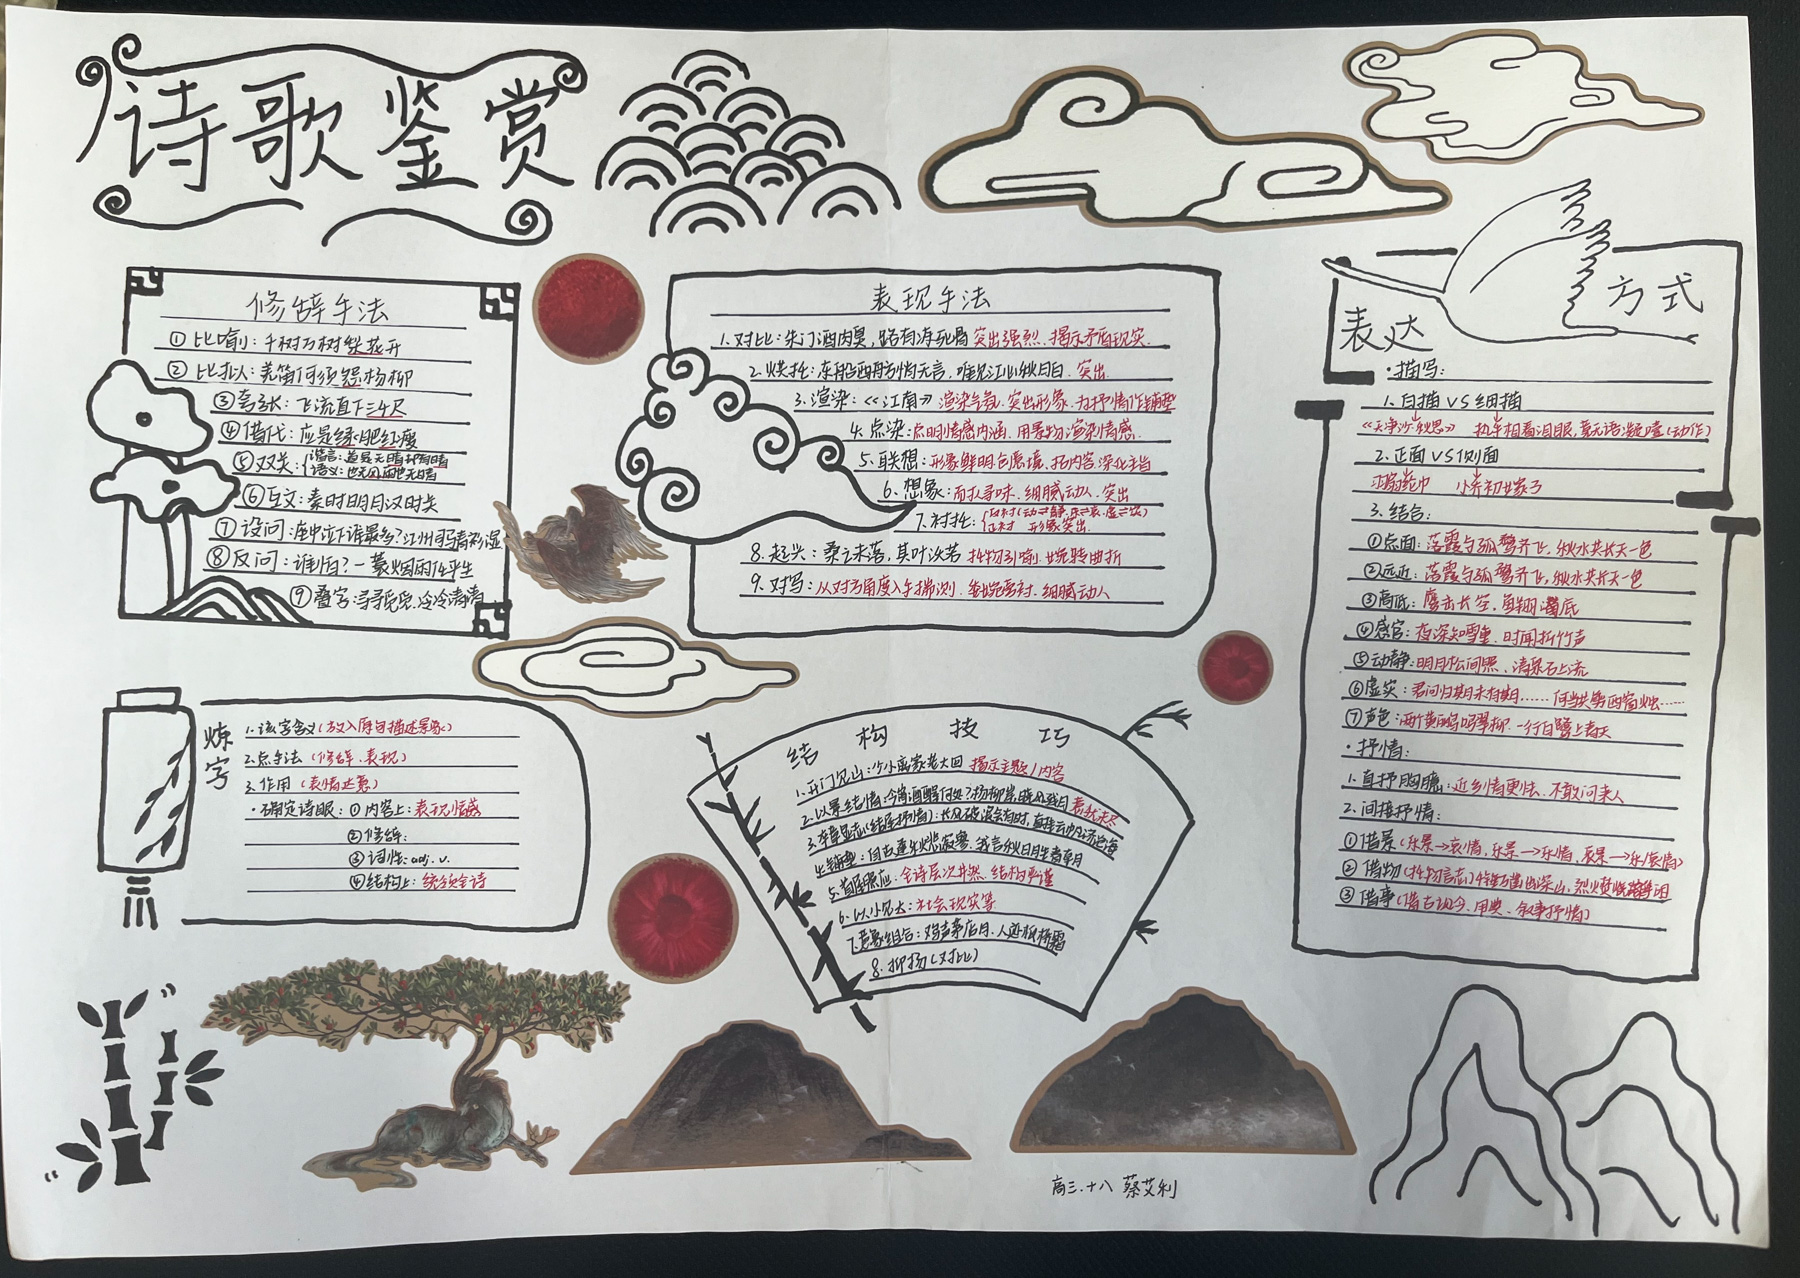 诗歌鉴赏
修辞手法
①比喻:千树万树梨花开
②比拟人:羌笛何须怨杨柳
③夸张:飞流直下三千尺
④借代:应是绿肥红瘦
⑤双关:谐言:道是无晴却有晴
语义:也无风雨也无晴
⑥互文:秦时明月汉时关
⑦设问:座中泣下谁最多?江州司马青衫湿
⑧反问:谁怕?一蓑烟雨任平生
⑨叠字:寻寻觅觅,冷冷清清
表现手法
1.对比:朱门酒肉臭,路有冻死骨 突出强烈、揭示矛盾现实.
2.烘托:东船西舫悄无言,唯见江心秋月白.突出.
3.渲染:《江南》渲染气氛.突出形象.为抒情作铺垫
4.点染:点明情感内涵.用景物渲染情感.
5.联想:形象鲜明创意境、拓内容.深化主旨
6.想象:耐人寻味.细腻动人.突出
7.衬托:反衬(动⇌静.乐⇌哀.虚⇌实)
正衬 形象突出.
8.起兴:桑之未落,其叶沃若 托物引喻.婉转曲折
9.对写:从对方角度入手揣测.委婉含衬.细腻动人
表达方式
·描写:
1.白描 VS 细描
《天净沙·秋思》 执手相看泪眼,竟无语凝噎(动作)
2.正面 VS 侧面
羽扇纶巾 小乔初嫁了
3.结合:
①点面:落霞与孤鹜齐飞,秋水共长天一色
②远近:落霞与孤鹜齐飞,秋水共长天一色
③高低:鹰击长空,鱼翔浅底
④感官:夜深知雪重.时闻折竹声
⑤动静:明月松间照、清泉石上流
⑥虚实:君问归期未有期……何当共剪西窗烛……
⑦声色:两个黄鹂鸣翠柳.一行白鹭上青天
·抒情:
1.直抒胸臆:近乡情更怯、不敢问来人
2.间接抒情:
①借景(乐景→哀情,乐景→乐情,哀景→乐/哀情)
②借物(托物言志)千锤万凿出深山,烈火焚烧若等闲
③借事(借古讽今、用典、叙事抒情)
炼字
1.该字含义(放入原句描述景象)
2.点手法(修辞、表现)
3.作用(表情达意)
·确定诗眼:①内容上:表现情感
②修辞:
③词性:adj. v.
④结构上:统领全诗
结构技巧
1.开门见山:少小离家老大回 揭示主题/内容
2.以景结情:今宵酒醒何处?杨柳岸,晓风残月
3.卒章显志(结尾抒情):长风破浪会有时,直挂云帆济沧海
4.铺垫:自古逢秋悲寂寥、我言秋日胜春朝
5.首尾照应:全诗层次井然.结构严谨
6.以小见大:社会现实等
7.意象组合:鸡声茅店月.人迹板桥霜
8.抑扬(对比)
高三.十八 蔡艾利